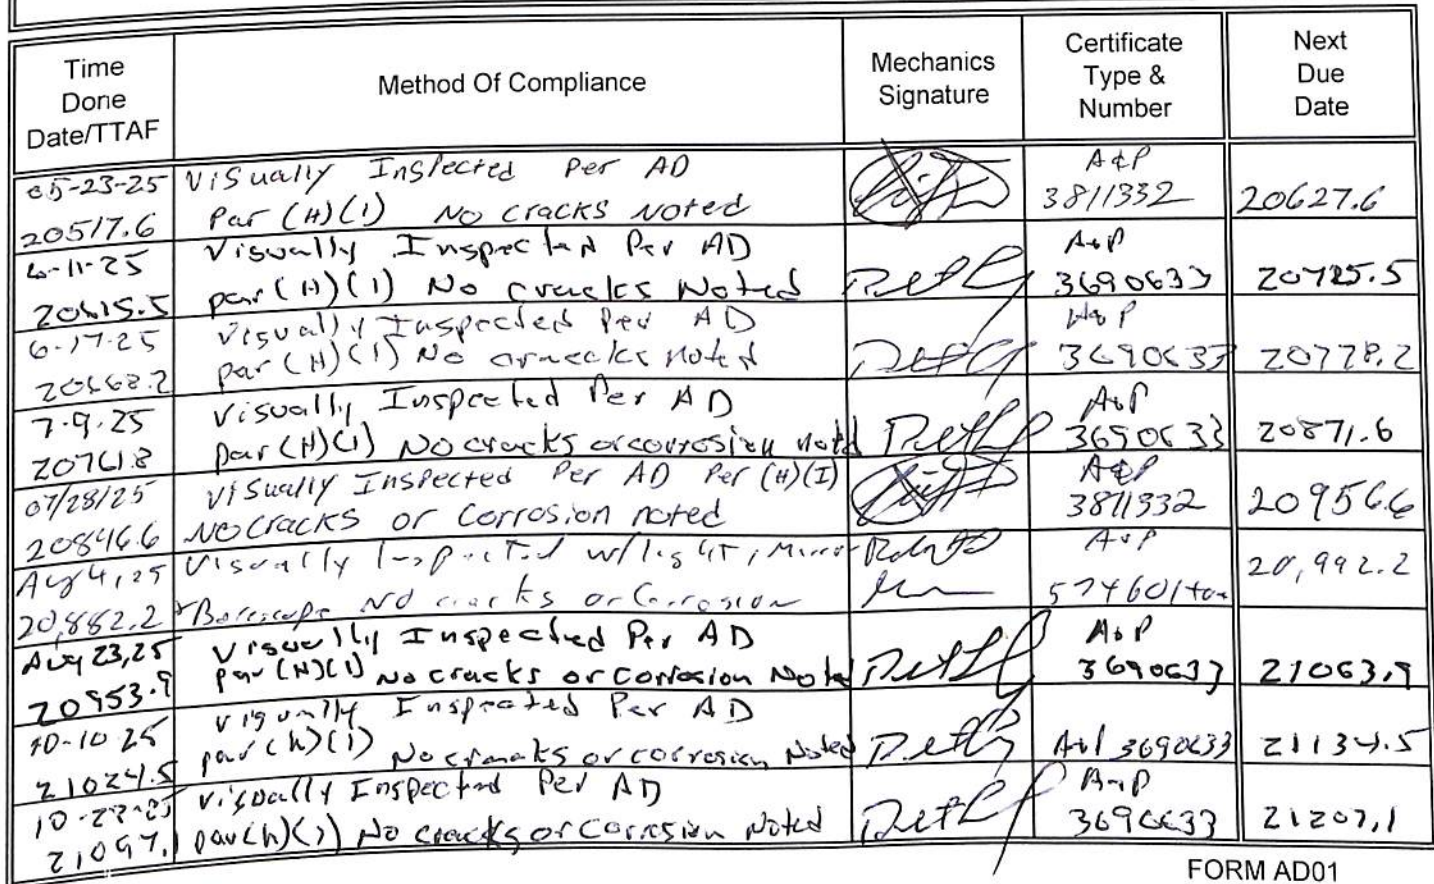 Time Done Date/TTAF
Method Of Compliance
Mechanics Signature
Certificate Type & Number
Next Due Date
05-23-25 Visually Inspected Per AD A&P
20517.6 Par (H)(1) No cracks Noted 3811332 20627.6
6-11-25 Visually Inspected Per AD A&P
20615.5 par (H)(1) No cracks Noted 3690633 20725.5
6-17-25 Visually Inspected Per AD A&P
20668.2 par (H)(1) No cracks noted 3690633 20778.2
7-9-25 Visually Inspected Per AD A&P
20761.8 par (H)(1) No cracks or corrosion noted 3690633 20871.6
07/28/25 Visually Inspected Per AD Per (H)(I) A&P
20846.6 No Cracks or Corrosion noted 3811332 20956.6
Aug 4, 25 Visually Inspected w/light, Mirror A&P
20,882.2 + Borescope No cracks or Corrosion 574601 20,992.2
Aug 23, 25 Visually Inspected Per AD A&P
20953.9 par (H)(1) No cracks or Corrosion Noted 3690633 21063.9
10-10-25 Visually Inspected Per AD
21024.5 par (h)(1) No cracks or corrosion Noted 3690633 21134.5
Visually Inspected Per AD A&P
21097.1 par (h)() No cracks or Corrosion Noted 3690633 21207.1
FORM AD01